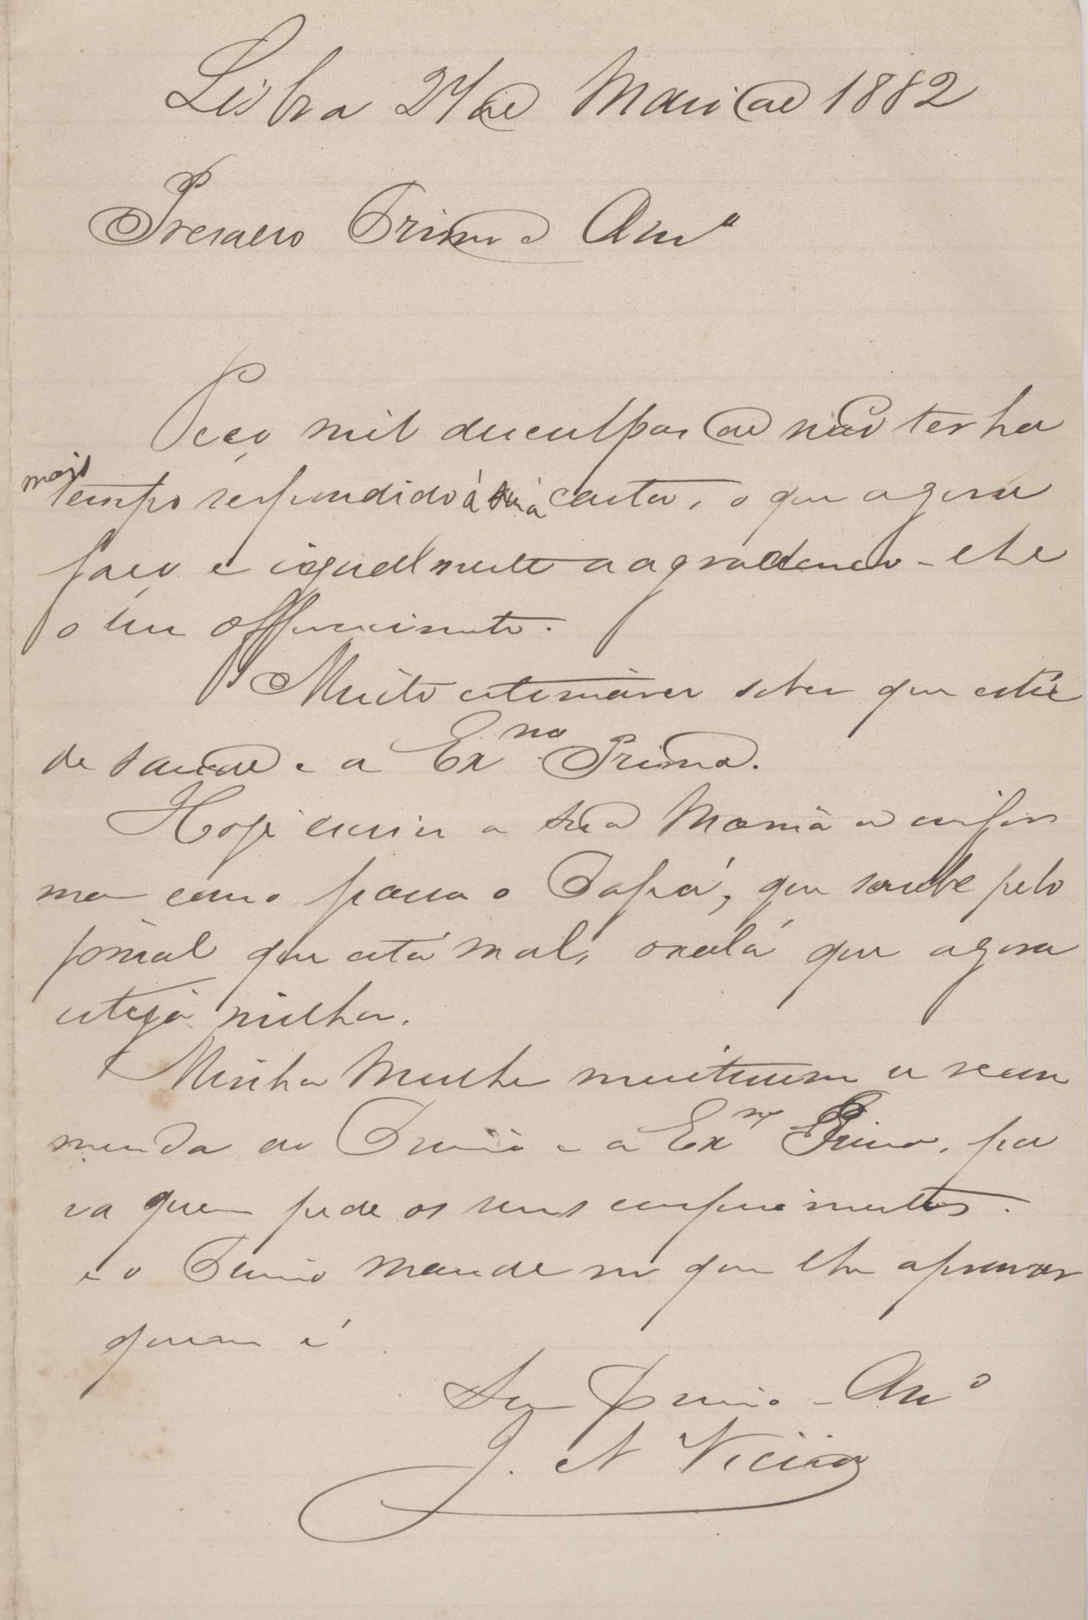 Lisboa 27 de Maio de 1882
Presado Primo e Amº
Peço mil desculpas de não ter ha
mais tempo respondido á sua carta, o que agora
faço e igualmente a agradecer-lhe
o seu offerecimento.
Muito estimarei saber que está
de saude e a Exma Prima.
Hoje escrevi a sua Mamã a
como passa o Papá, que soube pelo
jornal que está mal, oxalá que agora
esteja milhor.
Minha Mulher muitissimo se recom
menda ao Primo e a Exma Prima, pa
ra quem pede os seus cumprimentos.
e o Primo mande no que lhe aprouver
quem é
Seu Primo - Amº
J. N. Vieira